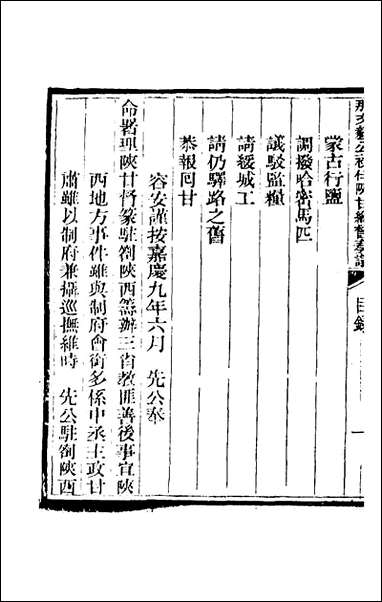 那文毅公初任陝甘總督奏議
目錄
一
蒙古行鹽
調撥哈密馬匹
議駁監糧
請緩城工
請仍驛路之舊
恭報回甘
容安謹按嘉慶九年六月 先公奉
命署理陝甘督篆駐劄陝西籌辦三省教匪善後事宜陝
西地方事件雖與制府會銜多係中丞主政甘
肅雖以制府兼攝巡撫維時 先公駐劄陝西